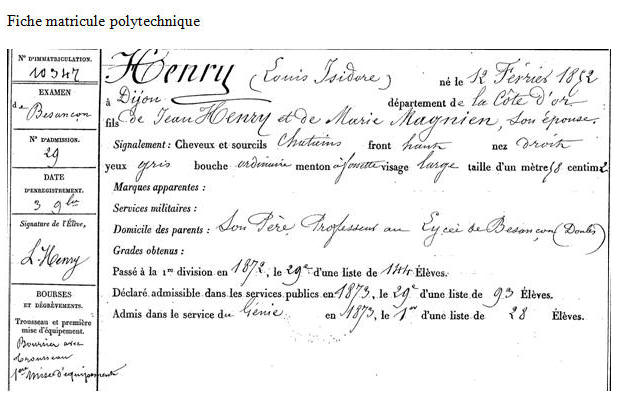 Fiche matricule polytechnique
N° D'IMMATRICULATION.
10347
EXAMEN
de Besançon
N° D'ADMISSION.
29
DATE
D'ENREGISTREMENT.
3 9bre
Signature de l'Élève,
L. Henry
BOURSES
ET DÉGRÈVEMENTS.
Trousseau et première
mise d'équipement.
Boursier avec
trousseau
1ère mise d'équipement
Henry (Louis Isidore) né le 12 Février 1852
à Dijon département de la Côte d'or
fils de Jean Henry et de Marie Magnien, son épouse.
Signalement : Cheveux et sourcils Chatains front haut nez droit
yeux gris bouche ordinaire menton à fossette visage large taille d'un mètre centim
Marques apparentes :
Services militaires :
Domicile des parents : Son Père, Professeur au Lycée de Besançon (Doubs)
Grades obtenus :
Passé à la 1re division en 1872, le 29e d'une liste de 144 Élèves.
Déclaré admissible dans les services publics en 1873, le 29e d'une liste de 93 Élèves.
Admis dans le service du Génie en 1873, le 1er d'une liste de 28 Élèves.